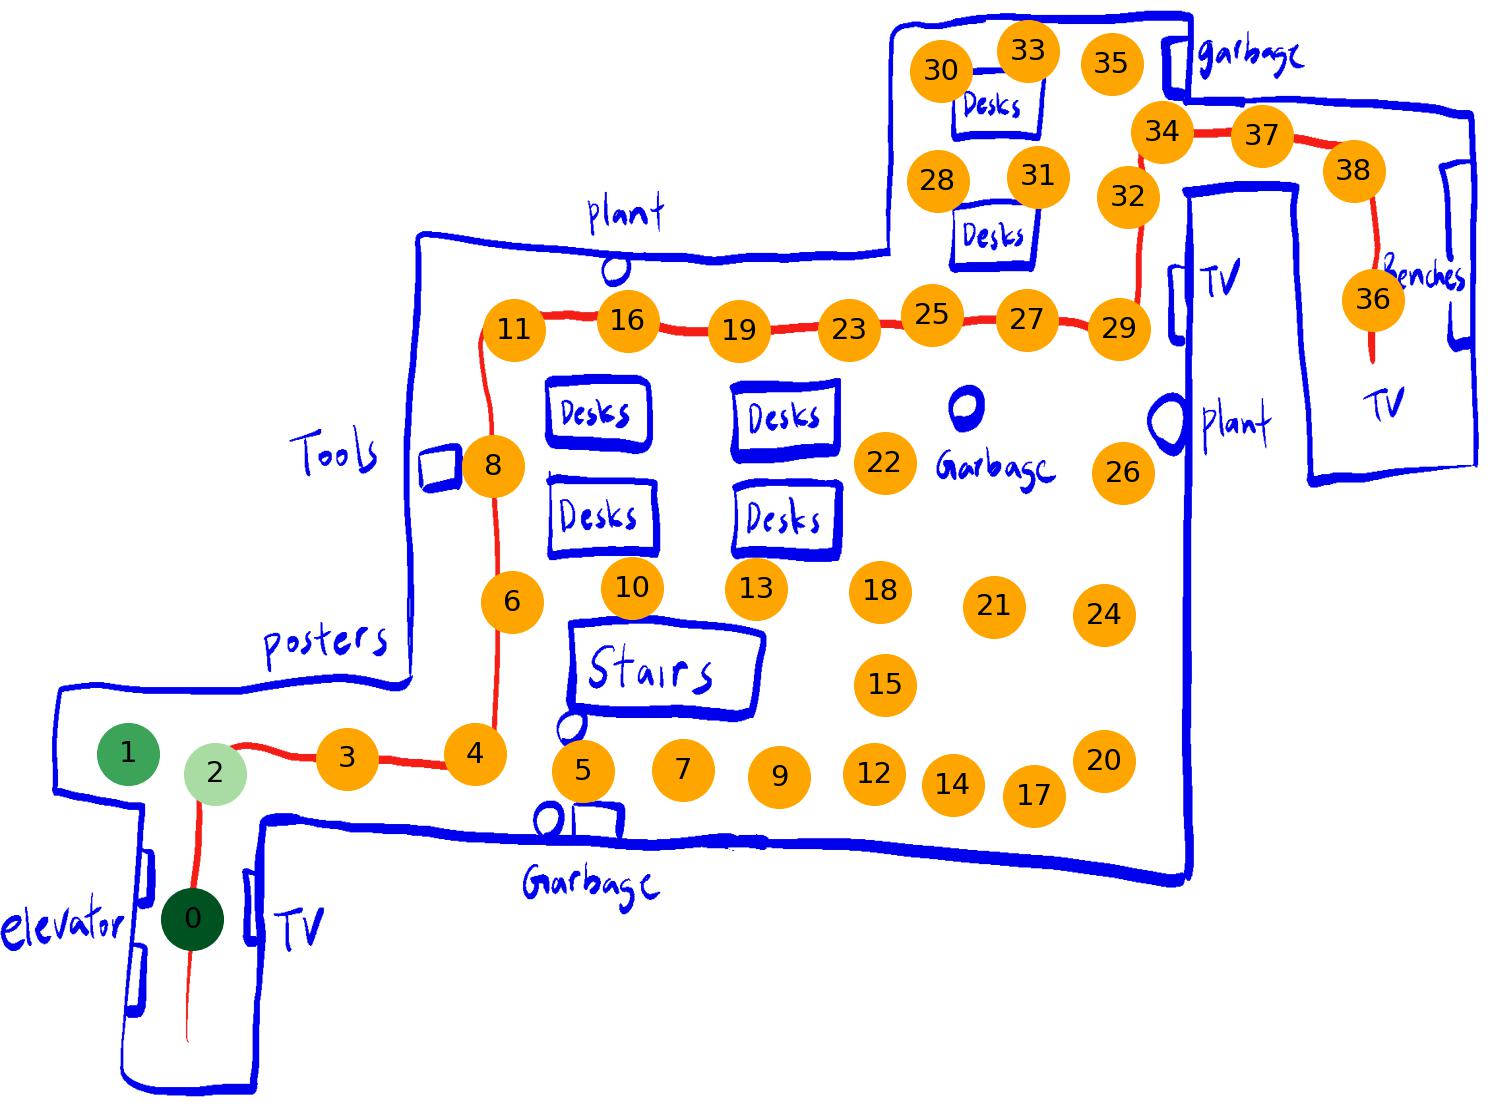 33
35
garbage
30
Desks
34
37
38
28
31
32
plant
Desks
TV
Benches
36
11
16
19
23
25
27
29
TV
Desks
Desks
plant
Tools
8
22
Garbage
26
Desks
Desks
6
10
13
18
21
24
posters
Stairs
15
1
2
3
4
5
7
9
12
14
17
20
Garbage
elevator
0
TV